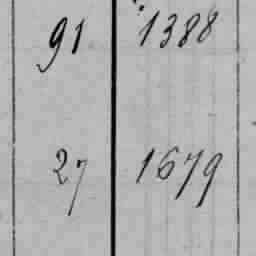 91 1388
27 1679